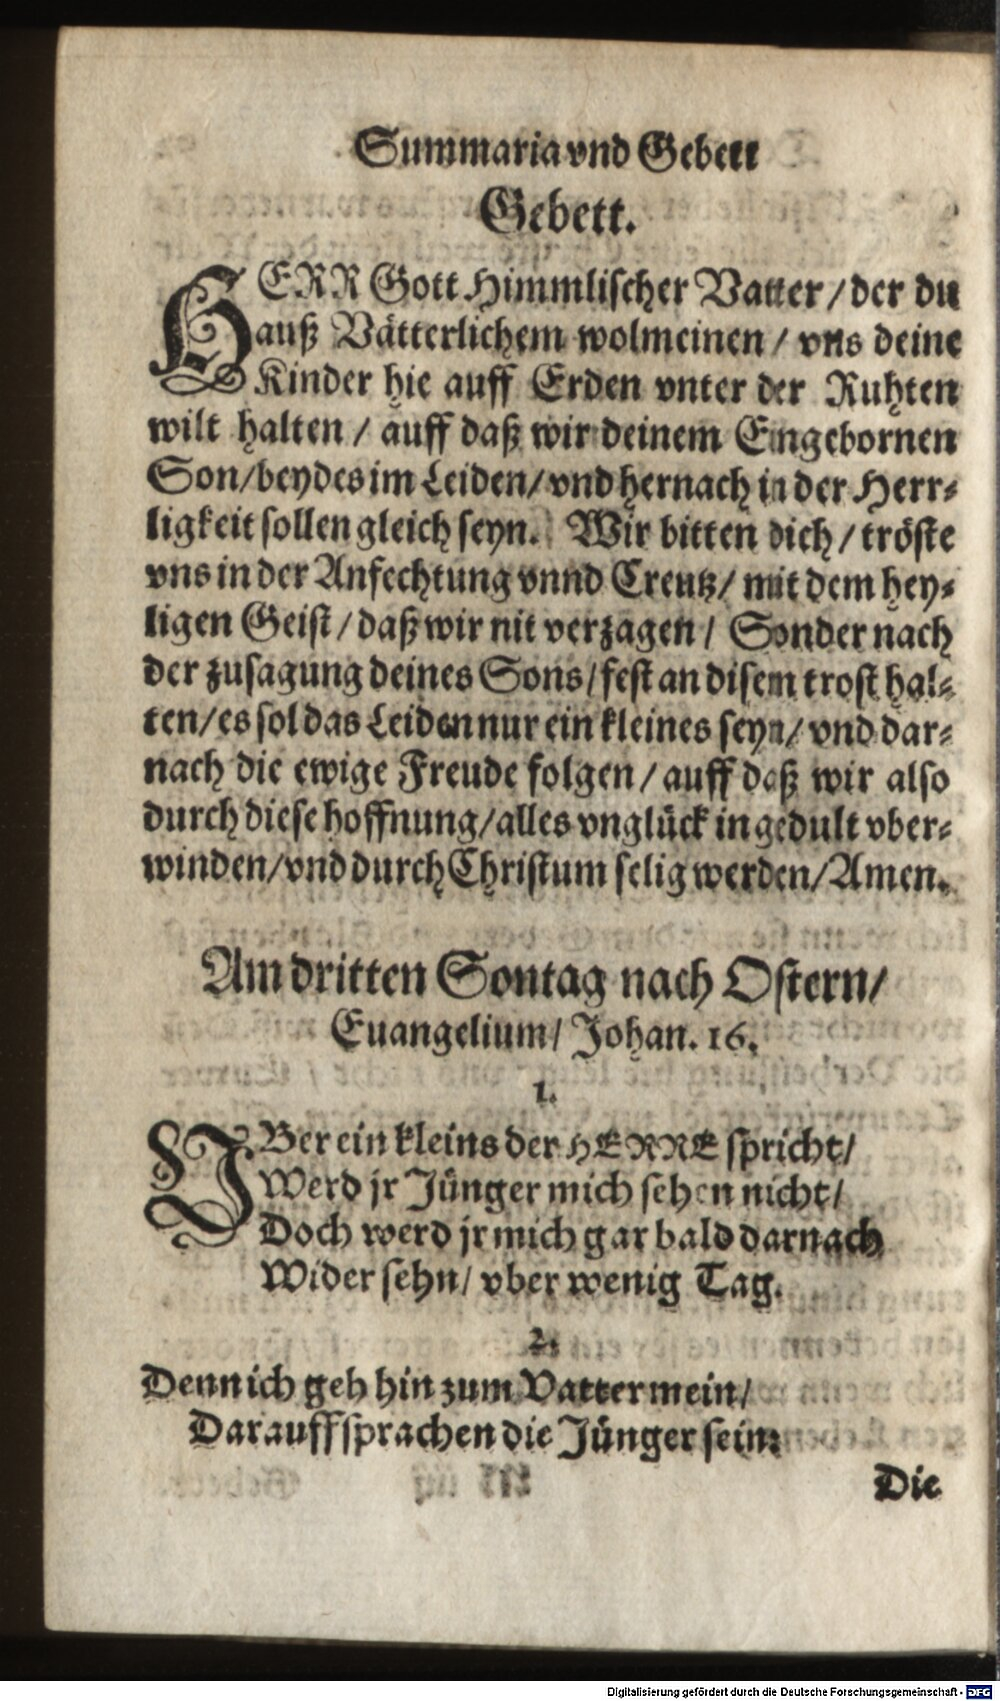 Summaria vnd Gebett
Gebett.
HERR Gott Himmlischer Vatter / der du
auß Vätterlichem wolmeinen / vns deine
Kinder hie auff Erden vnter der Ruhten
wilt halten / auff daß wir deinem Eingebornen
Son/beydes im Leiden/vnd hernach in der Herr⸗
ligkeit sollen gleich seyn. Wir bitten dich / tröste
vns in der Anfechtung vnnd Creutz/ mit dem hey⸗
ligen Geist / daß wir nit verzagen / Sonder nach
der zusagung deines Sons/fest an disem trost hal⸗
ten/es sol das Leiden nur ein kleines seyn/ vnd dar⸗
nach die ewige Freude folgen / auff daß wir also
durch diese hoffnung/alles vnglück in gedult vber⸗
winden/vnd durch Christum selig werden/Amen.
Am dritten Sontag nach Ostern/
Euangelium/ Johan. 16.
1.
VBer ein kleins der HERRE spricht/
Werd jr Jünger mich sehen nicht/
Doch werd jr mich gar bald darnach
Wider sehn/ vber wenig Tag.
2.
Denn ich geh hin zum Vatter mein/
Darauff sprachen die Jünger sein:
Die
Digitalisierung gefördert durch die Deutsche Forschungsgemeinschaft - DFG